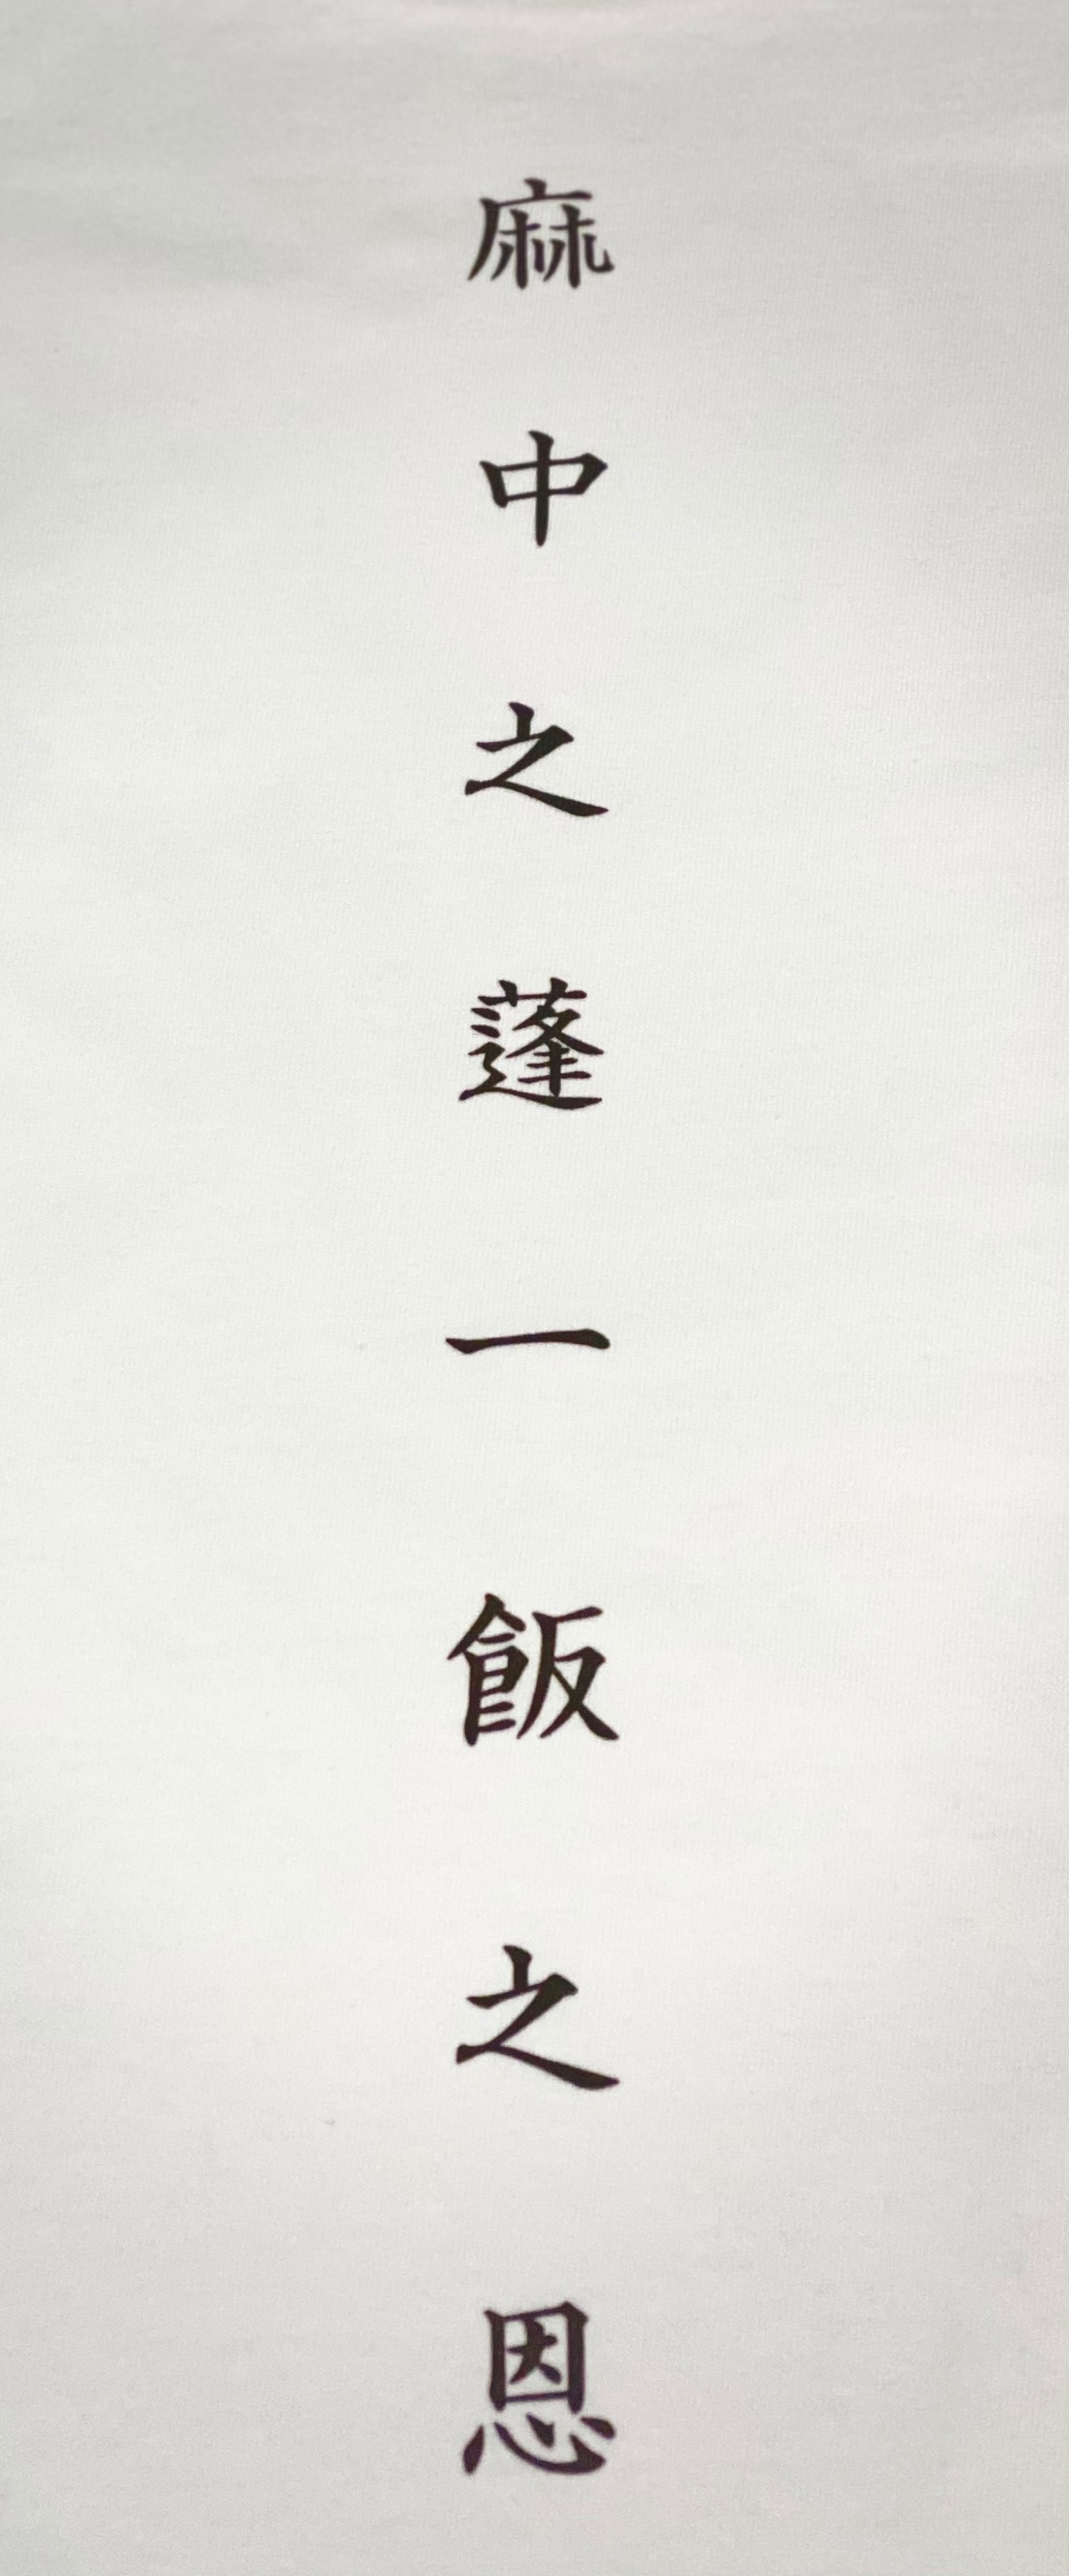 麻中之蓬一飯之恩